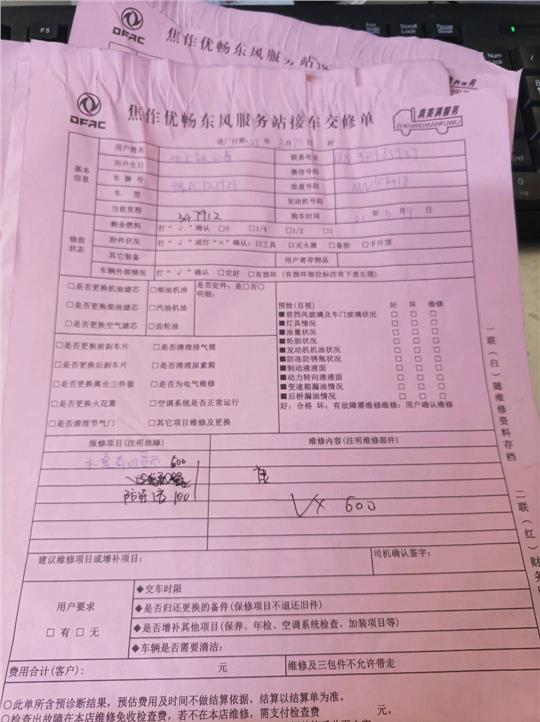 F5
Scroll Lock
Pause
Num
DFAC
焦作优畅东风服务站
DFAC
焦作优畅东风服务站接车交修单
真美满服务
ZHENMEIMANFUWU
进厂日期: 年 月 日 时
基本信息
用户姓名
联系电话
用户生日
微信号码
车辆号
底盘号码
车型
发动机号码
当前里程
347912
购车时间
21 年 3 月 9 日
修前状态
剩余燃料
打“√”确认 □0 □1/4 □1/2 □1
附件状况
打“√”或打“×”确认: □工具 □灭火器 □备胎 □千斤顶
其它装备
用户寄存物品
车辆外部情况
打“√”确认 □完好 □有损坏 (有损坏部位标注有下表左图)
□是否更换机油滤芯
□柴油机油
是否定件: 是□否□
明细:
□是否更换柴油滤芯
□汽油机油
□是否更换空气滤芯
□齿轮油
□是否更换前刹车片
□是否清理排气筒
□是否更换后刹车片
□是否清理尿素箱
□是否更换离合三件套
□是否为电气维修
□是否更换火花塞
□空调系统是否正常运行
□是否清理节气门
□其它项目维修及更换
预检(目视) 好 坏 维修
■前挡风玻璃及车门玻璃状况 □ □ □
■灯具情况 □ □ □
■油量状况 □ □ □
■轮胎状况 □ □ □
■发动机机油状况 □ □ □
■防冻防锈瓶状况 □ □ □
■制动液液面 □ □ □
■动力转向液液面 □ □ □
■变速箱漏油情况 □ □ □
■后桥漏油情况 □ □ □
好: 合格 坏: 有故障需维修维修: 用户确认维修
报修项目(注明故障)
维修内容(注明维修部件)
600
100
600
建议维修项目或增补项目:
司机确认签字:
用户要求
□有 □无
◆交车时限
◆是否归还更换的备件(保修项目不退还旧件)
◆是否增补其他项目(保养、年检、空调系统检查、加装项目等)
◆车辆是否需要清洁:
费用合计(客户): 元
维修及三包件不允许带走
○此单所含预诊断结果，预估费用及时间不做结算依据，结算以结算单为准。
○检查出故障在本店维修免收检查费，若不在本店维修，需支付检查费 元。
一联(白)随维修资料存档
二联(红)财务